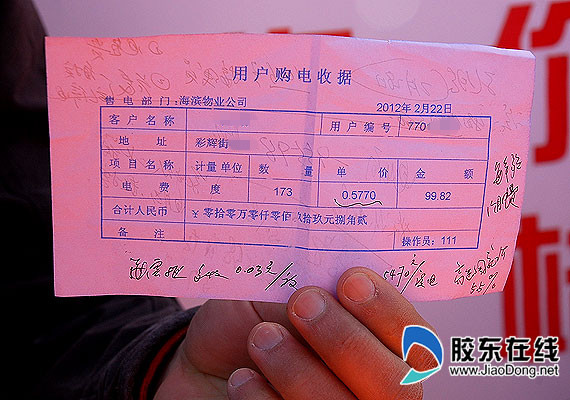 用户购电收据
售电部门:海滨物业公司 2012年2月22日
客户名称 用户编号 770
地址 彩辉街
项目名称 计量单位 数量 单价 金额
电费 度 173 0.5770 99.82
合计人民币 ￥零拾零万零仟零佰玖拾玖元捌角贰
备注 操作员:111
0.03元/度
55%
你
胶东在线
www.JiaoDong.net